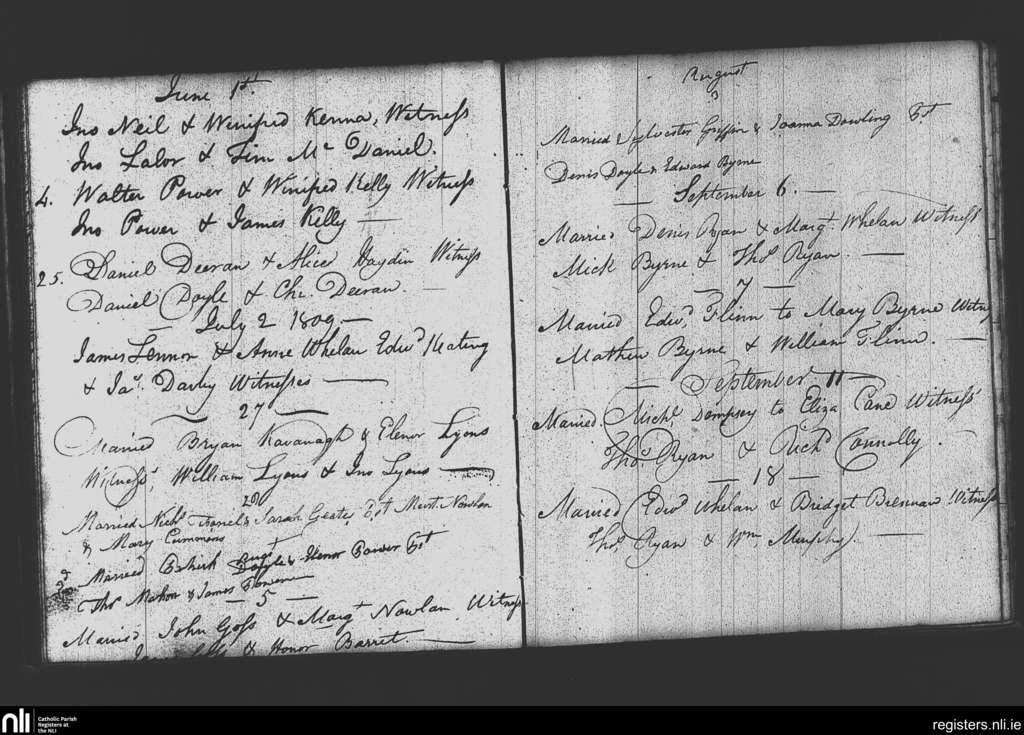 June 1st
Jno Neil & Winifred Kenna, Witness
Jno Lalor & Tim Mc Daniel.
4. Walter Power & Winifred Kelly Witness
Jno Power & James Kelly —
25. Daniel Deeran & Alice Haydin Witness
Daniel Doyle & Chr. Deeran. —
— July 2 1809 —
James Lennon & Anne Whelan Edwd Keating
& Jas. Darby Witnesses —
— 27 —
Married Bryan Kavanagh & Elenor Lyons
Witness, William Lyons & Jno Lyons —
Married Nichs & Sarah Nowlan
& Mary Cummins
Married Doyle & Elenor Power Et
Thos Mahon & James Power
— 5 —
Married John Goss & Margt Nowlan Witness
& Honor Barret. —
August
3
Married Sylvester Griffin & Joanna Dowling Et
Denis Doyle & Edward Byrne
— September 6. —
Married Denis Ryan & Margt. Whelan Witness
Mick Byrne & Thos Ryan. —
— 7 —
Married Edwd. Flinn to Mary Byrne Witns
Mathew Byrne & William Flinn. —
— September 11 —
Married Michl. Dempsey to Eliza Cane Witness
Thos Ryan & Richd Connolly.
— 18 —
Married Edwd Whelan & Bridget Brennan Witness
Thos. Ryan & Wm Murphy. —
nli Catholic Parish
Registers at
the NLI
registers.nli.ie